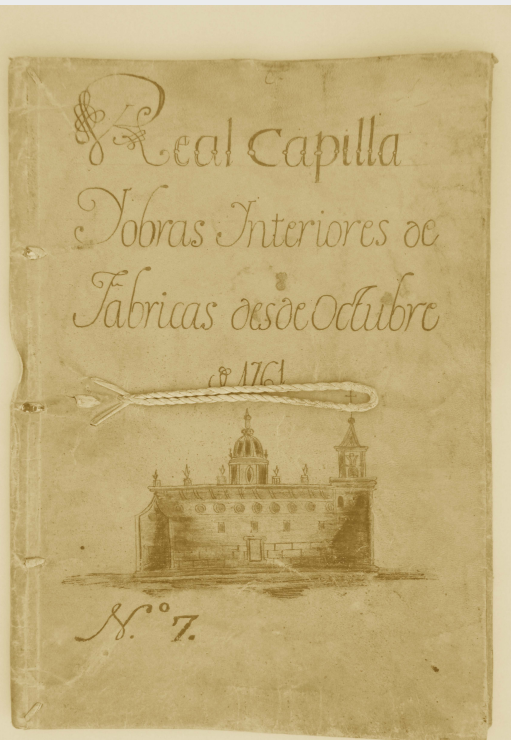 Real Capilla
Yobras Interiores de
Fabricas desde Octubre
d 1761
N.º 7.